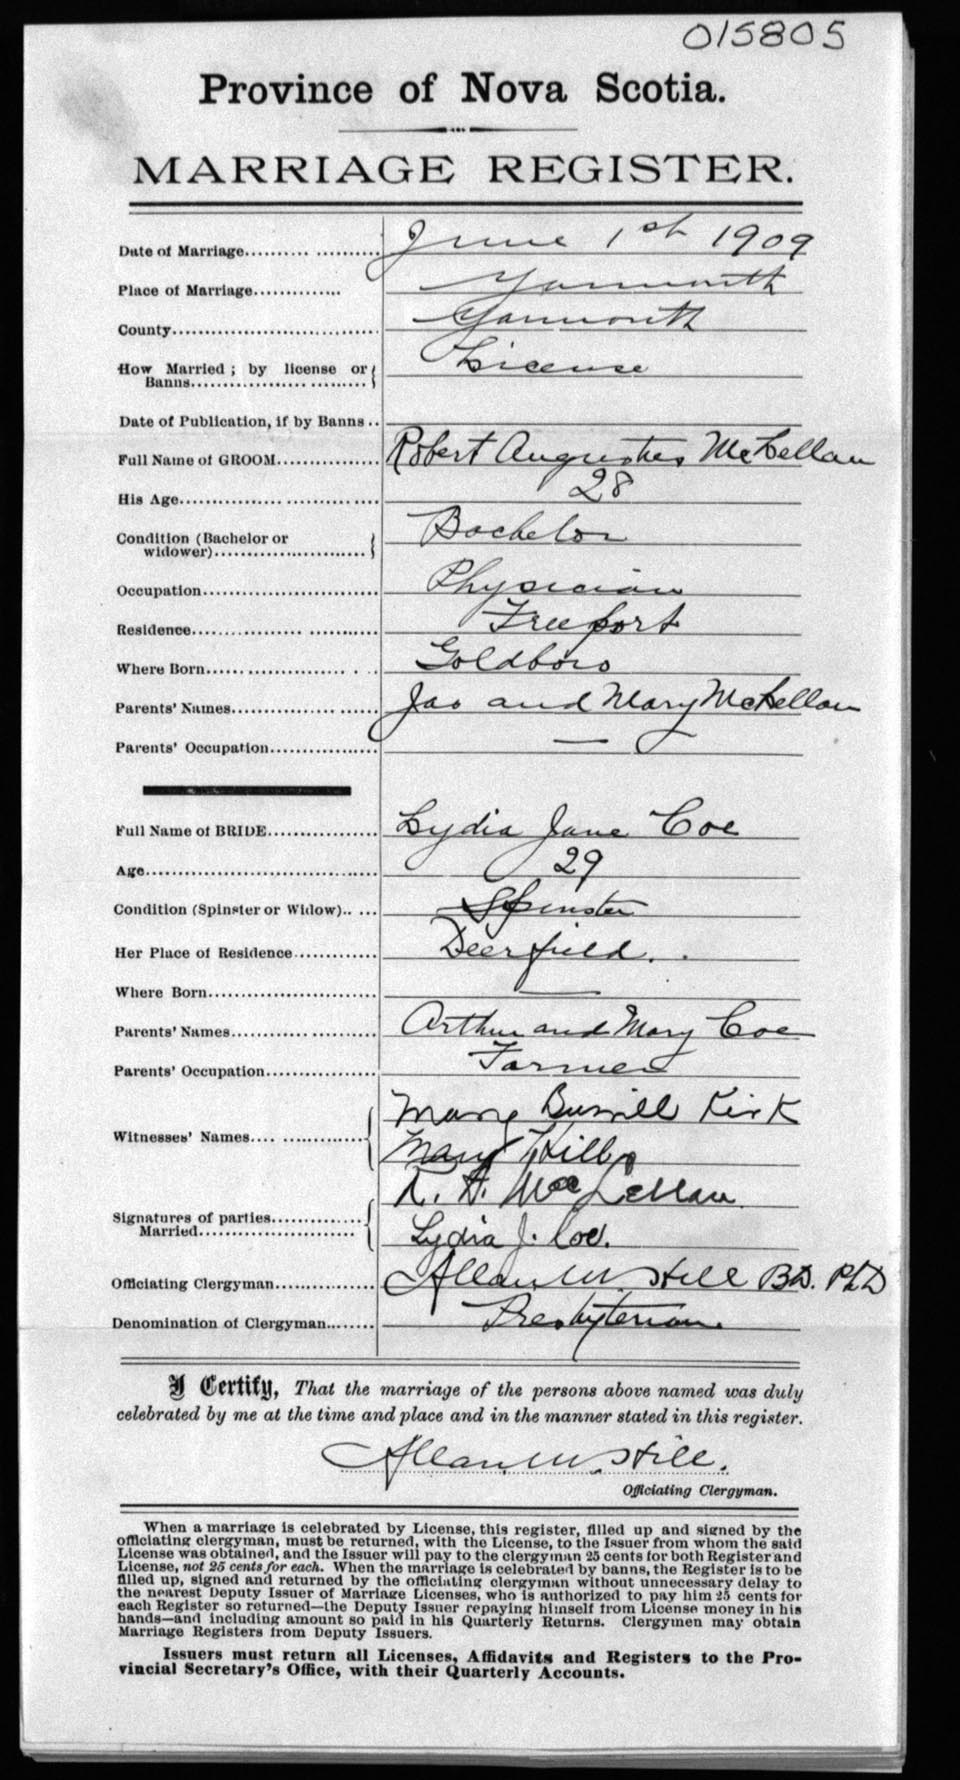 015805
Province of Nova Scotia.
MARRIAGE REGISTER.
Date of Marriage.......... June 1st 1909
Place of Marriage............. Yarmouth
County............................. Yarmouth
How Married ; by license or
Banns............................. License
Date of Publication, if by Banns ..
Full Name of GROOM............... Robert Augustus McLellan
His Age............................. 28
Condition (Bachelor or
widower)......................... Bachelor
Occupation............................. Physician
Residence............................. Freeport
Where Born............................. Goldboro
Parents' Names....................... Jas and Mary McLellan
Parents' Occupation................. —
Full Name of BRIDE................. Lydia Jane Coe
Age............................. 29
Condition (Spinster or Widow)..... Spinster
Her Place of Residence............. Deerfield.
Where Born............................. —
Parents' Names....................... Arthur and Mary Coe
Parents' Occupation................. Farmer
Mary Burrill Kirk
Witnesses' Names.................
Mary Hill
R. A. MacLellan
Signatures of parties..............
Married............................. Lydia J. Coe.
Officiating Clergyman.............. Allan W Hill BD. PhD
Denomination of Clergyman....... Presbyterian.
I Certify, That the marriage of the persons above named was duly
celebrated by me at the time and place and in the manner stated in this register.
Allan W. Hill.
Officiating Clergyman.
When a marriage is celebrated by License, this register, filled up and signed by the
officiating clergyman, must be returned, with the License, to the Issuer from whom the said
License was obtained, and the Issuer will pay to the clergyman 25 cents for both Register and
License, not 25 cents for each. When the marriage is celebrated by banns, the Register is to be
filled up, signed and returned by the officiating clergyman without unnecessary delay to
the nearest Deputy Issuer of Marriage Licenses, who is authorized to pay him 25 cents for
each Register so returned—the Deputy Issuer repaying himself from License money in his
hands—and including amount so paid in his Quarterly Returns. Clergymen may obtain
Marriage Registers from Deputy Issuers.
Issuers must return all Licenses, Affidavits and Registers to the Pro-
vincial Secretary's Office, with their Quarterly Accounts.